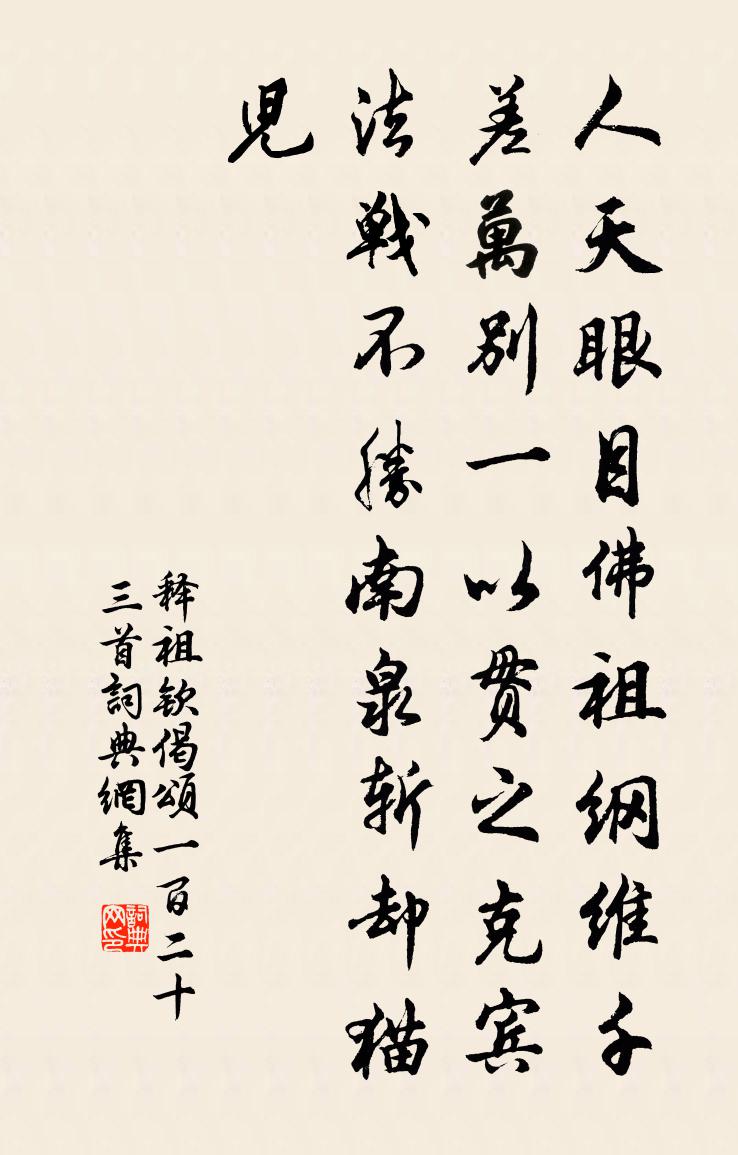 人天眼目佛祖纲维千
差萬别一以贯之克宾
法戦不勝南泉斩却猫
児
释祖钦偈頌一百二十
三首詞典網集
詞典
网印